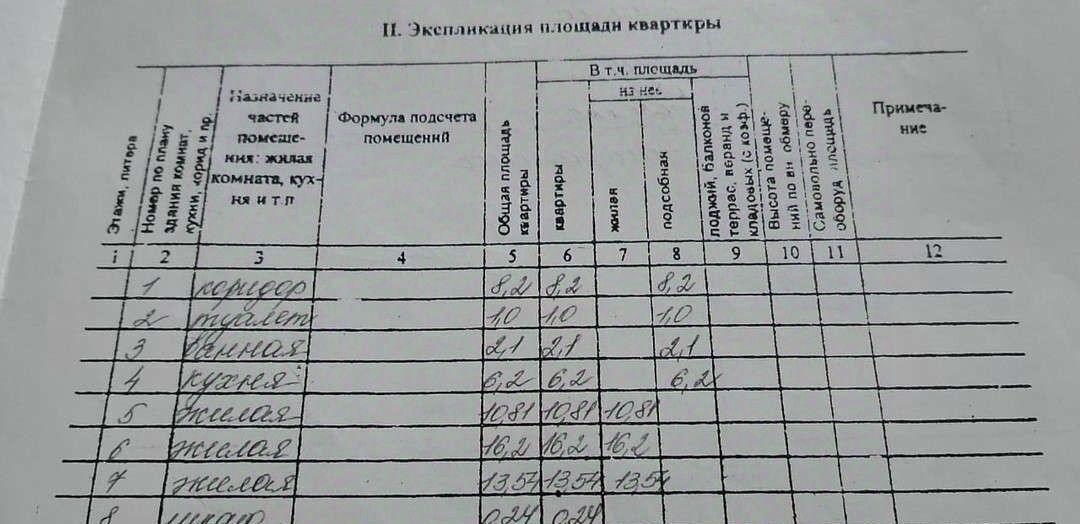 II. Экспликация площади кварткры
Этажи, литера
Номер по плану здания комнат, кухни, корид и пр.
Назначение частей помеще-ния: жилая комната, кух-ня и т.п
Формула подсчета помещений
Общая площадь квартиры
В т.ч. площадь
из нее
квартиры
жилая
подсобная
лоджий, балконов террас, веранд и кладовых (с коэф.)
Высота помеще-ний по вн обмеру
Самовольно пере-оборуд площадь
Примеча-ние
1 2 3 4 5 6 7 8 9 10 11 12
1 коридор 8,2 8,2 8,2
2 туалет 1,0 1,0 1,0
3 ванная 2,1 2,1 2,1
4 кухня 6,2 6,2 6,2
5 жилая 10,81 10,81 10,81
6 жилая 16,2 16,2 16,2
7 жилая 13,54 13,54 13,54
8 0,24 0,24